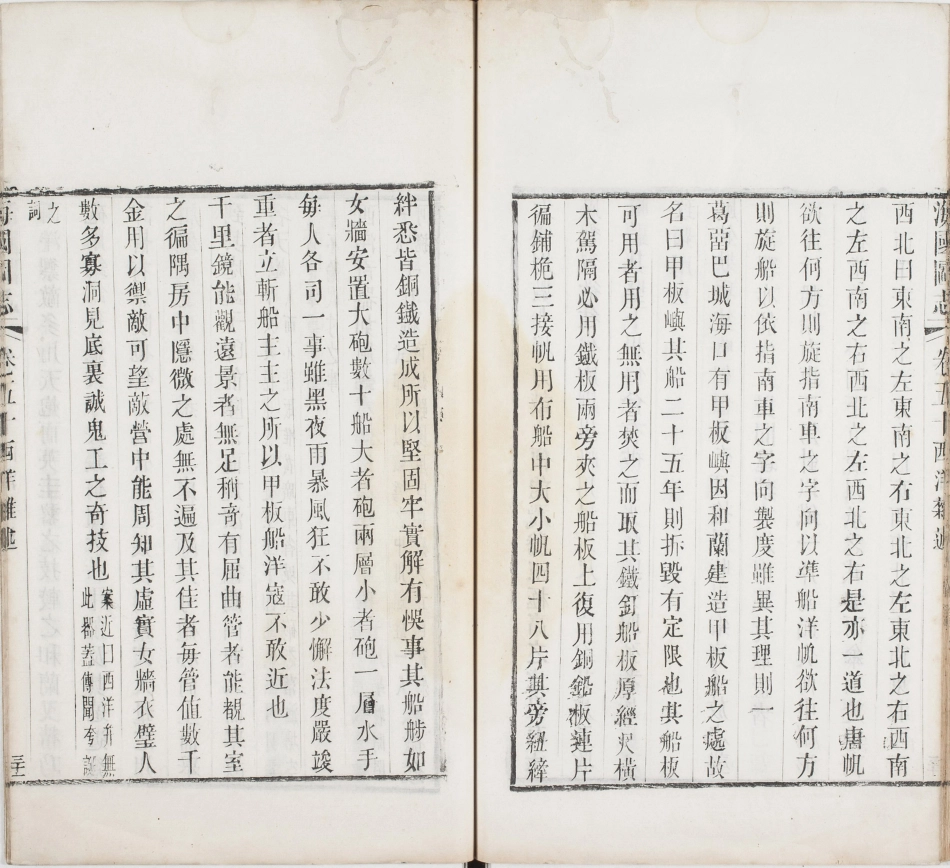 海國圖志 卷五十 西洋雜述
西北曰東南之左東南之右東北之左東北之右西南
之左西南之右西北之左西北之右是亦一道也唐帆
欲往何方則旋指南車之字向以準船洋帆欲往何方
則旋船以依指南車之字向製度雖異其理則一
葛啞巴城海口有甲板嶼因和蘭建造甲板船之處故
名曰甲板嶼其船二十五年則拆毀有定限也其船板
可用者用之無用者焚之而取其鐵釘船板厚經尺橫
木駕隔必用鐵板兩旁夾之船板上復用銅鉛板連片
徧鋪桅三接帆用布船中大小帆四十八片其旁紐縴
絆悉皆銅鐵造成所以堅固牢實解有悞事其船舷如
女牆安置大砲數十船大者砲兩層小者砲一層水手
每人各司一事雖黑夜雨暴風狂不敢少懈法度嚴竣
重者立斬船主主之所以甲板船洋寇不敢近也
千里鏡能觀遠景者無足稱奇有屈曲管者能覩其室
之徧隅房中隱微之處無不遍及其佳者每管值數千
金用以禦敵可望敵營中能周知其虛實女牆衣壁人
數多寡洞見底裏誠鬼工之奇技也 案近日西洋幷無
此器蓋傳聞夸誕
之
詞
海國圖志 卷五十 西洋雜述 三十一